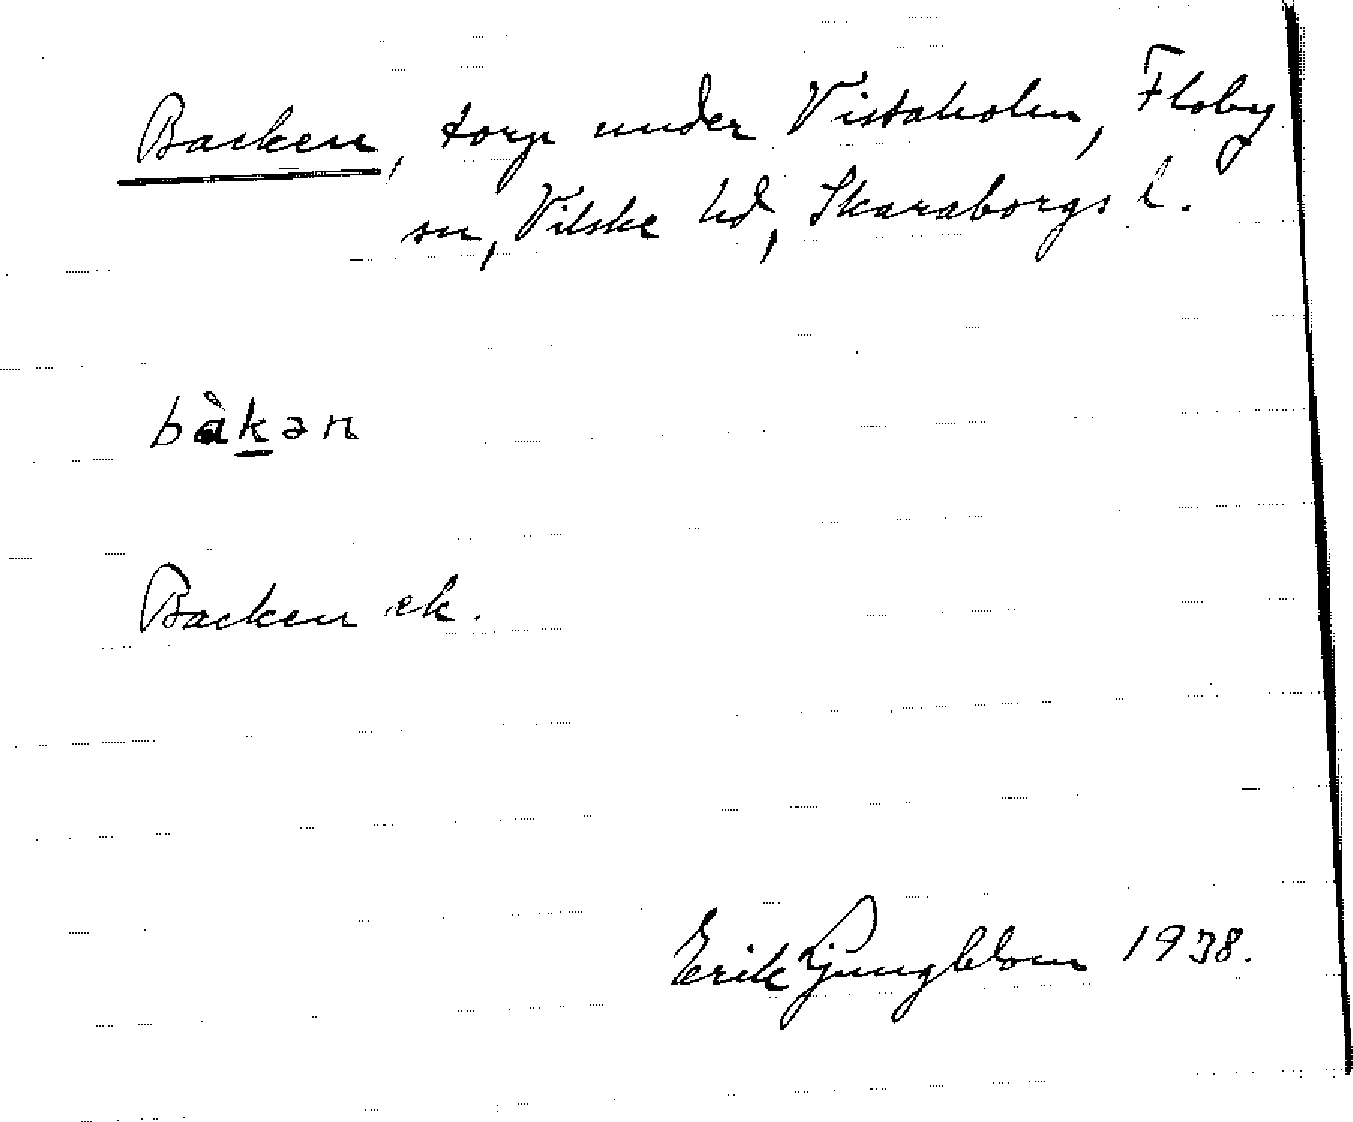 Backen, torp under Vistaholm, Floby
sn, Vilske hd, Skaraborgs l.
bàk̲ən
Backen ek.
Erik Ljungblom 1938.